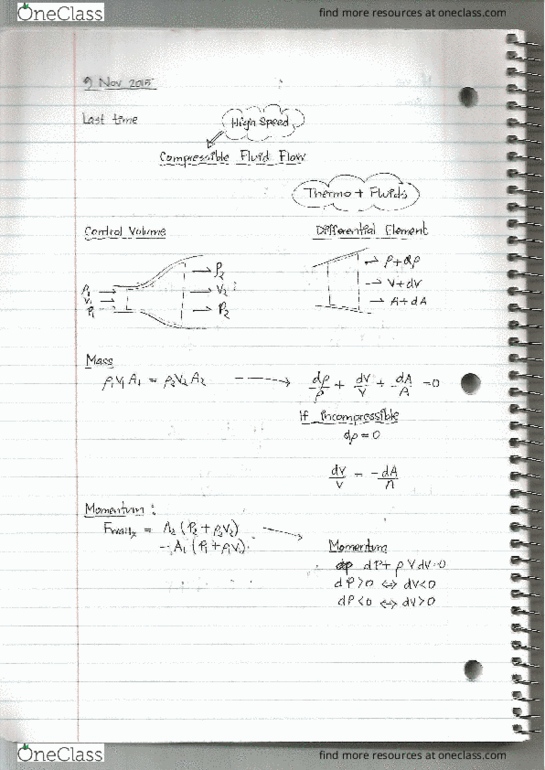 OneClass
find more resources at oneclass.com
9 Nov 2015
Last time
High Speed
Compressible Fluid Flow
Thermo + Fluids
Control Volume
Differential Element
P₁
V₁
ρ₁
ρ₂
V₂
P₂
ρ+dρ
V+dV
A+dA
Mass
ρ₁V₁A₁ = ρ₂V₂A₂
dρ/ρ + dV/V + dA/A = 0
If incompressible
dρ = 0
dV/V = -dA/A
Momentum :
Fwallₓ = A₂ (P₂ + ρ₂V₂)
- A₁ (P₁ + ρ₁V₁).
Momentum
dP + ρVdV=0
dP>0 ⇔ dV<0
dP<0 ⇔ dV>0
OneClass
find more resources at oneclass.com